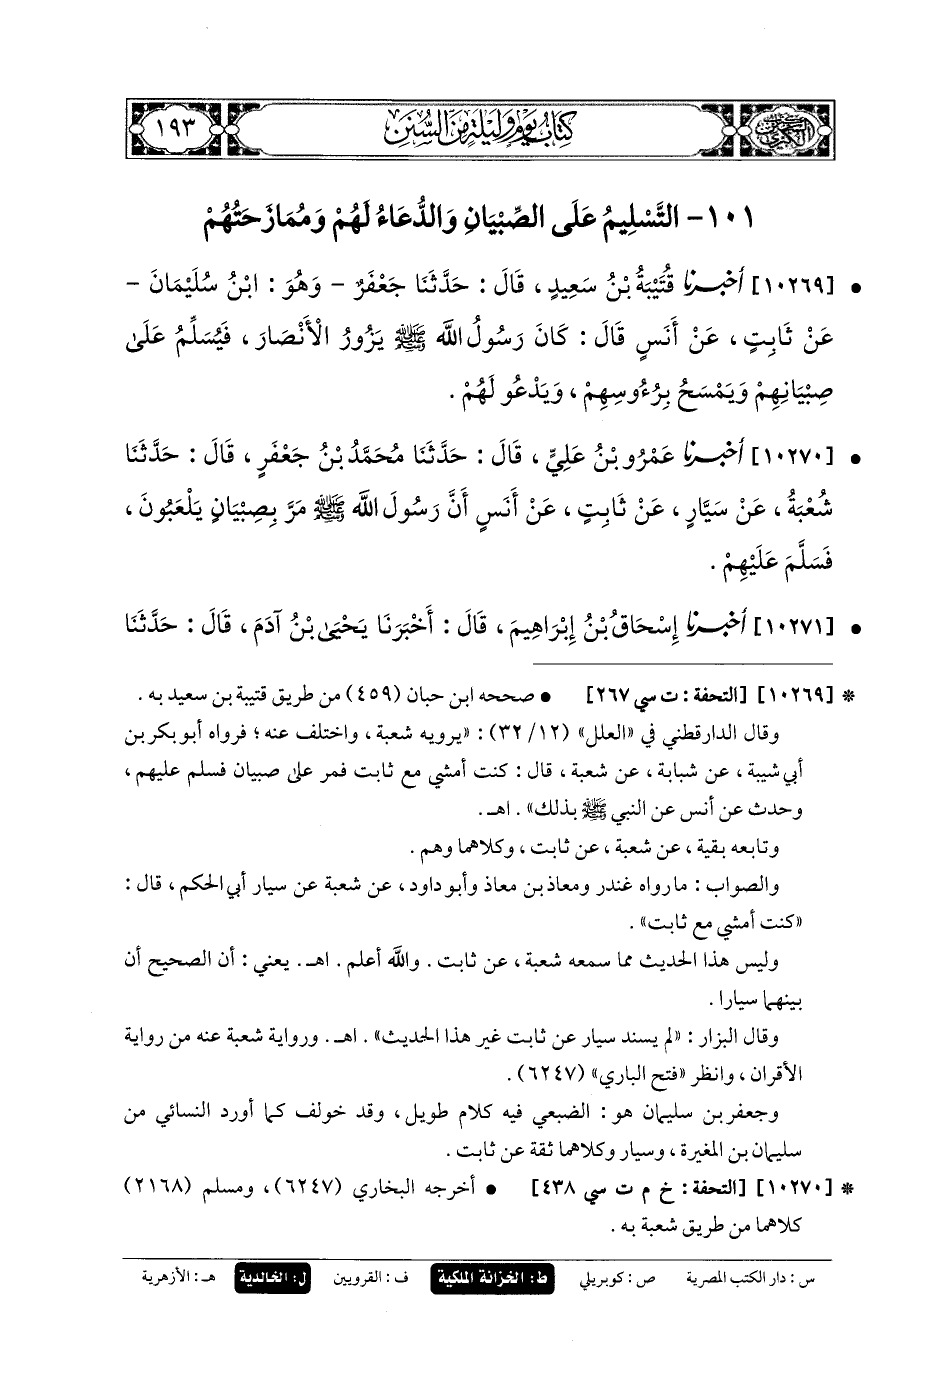 السنن الكبرى
كتاب يوم وليلة من السنن
١٩٣
١٠١- التَّسْلِيمُ عَلَى الصِّبْيَانِ وَالدُّعَاءُ لَهُمْ وَمُمَازَحَتُهُمْ
• [١٠٢٦٩] أخبرنا قُتَيْبَةُ بْنُ سَعِيدٍ، قَالَ: حَدَّثَنَا جَعْفَرٌ - وَهُوَ: ابْنُ سُلَيْمَانَ -
عَنْ ثَابِتٍ، عَنْ أَنَسٍ قَالَ: كَانَ رَسُولُ اللَّه ﷺ يَزُورُ الْأَنْصَارَ، فَيُسَلِّمُ عَلَى
صِبْيَانِهِمْ وَيَمْسَحُ بِرُءُوسِهِمْ، وَيَدْعُو لَهُمْ.
• [١٠٢٧٠] أخبرنا عَمْرُو بْنُ عَلِيٍّ، قَالَ: حَدَّثَنَا مُحَمَّدُ بْنُ جَعْفَرٍ، قَالَ: حَدَّثَنَا
شُعْبَةُ، عَنْ سَيَّارٍ، عَنْ ثَابِتٍ، عَنْ أَنَسٍ أَنَّ رَسُولَ اللَّه ﷺ مَرَّ بِصِبْيَانٍ يَلْعَبُونَ،
فَسَلَّمَ عَلَيْهِمْ.
• [١٠٢٧١] أخبرنا إِسْحَاقُ بْنُ إِبْرَاهِيمَ، قَالَ: أَخْبَرَنَا يَحْيَى بْنُ آدَمَ، قَالَ: حَدَّثَنَا
* [١٠٢٦٩] [التحفة: ت سي ٢٦٧] • صححه ابن حبان (٤٥٩) من طريق قتيبة بن سعيد به.
وقال الدارقطني في «العلل» (١٢/ ٣٢): «يرويه شعبة، واختلف عنه؛ فرواه أبو بكر بن
أبي شيبة، عن شبابة، عن شعبة، قال: كنت أمشي مع ثابت فمر على صبيان فسلم عليهم،
وحدث عن أنس عن النبي ﷺ بذلك». اهـ.
وتابعه بقية، عن شعبة، عن ثابت، وكلاهما وهم.
والصواب: ما رواه غندر ومعاذ بن معاذ وأبو داود، عن شعبة عن سيار أبي الحكم، قال:
«كنت أمشي مع ثابت».
وليس هذا الحديث مما سمعه شعبة، عن ثابت. والله أعلم. اهـ. يعني: أن الصحيح أن
بينهما سيارا.
وقال البزار: «لم يسند سيار عن ثابت غير هذا الحديث». اهـ. ورواية شعبة عنه من رواية
الأقران، وانظر «فتح الباري» (٦٢٤٧).
وجعفر بن سليمان هو: الضبعي فيه كلام طويل، وقد خولف كما أورد النسائي من
سليمان بن المغيرة، وسيار وكلاهما ثقة عن ثابت.
* [١٠٢٧٠] [التحفة: خ م ت سي ٤٣٨] • أخرجه البخاري (٦٢٤٧)، ومسلم (٢١٦٨)
كلاهما من طريق شعبة به.
س: دار الكتب المصرية ص: كوبريلي ط: الخزانة الملكية ف: القرويين ل: الخالدية هـ: الأزهرية